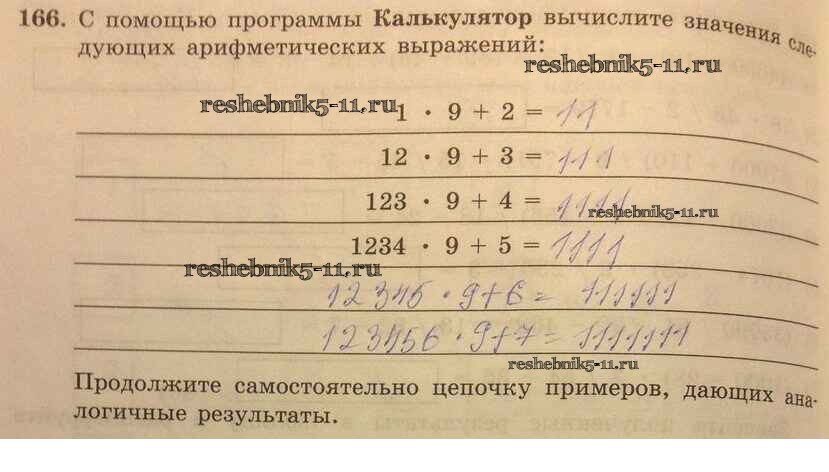 166. С помощью программы Калькулятор вычислите значения сле-
дующих арифметических выражений:
reshebnik5-11.ru
reshebnik5-11.ru
1 · 9 + 2 = 11
12 · 9 + 3 = 111
123 · 9 + 4 = 1111
reshebnik5-11.ru
1234 · 9 + 5 = 1111
reshebnik5-11.ru
12345 · 9+6= 111111
123456 · 9+7= 1111111
reshebnik5-11.ru
Продолжите самостоятельно цепочку примеров, дающих ана-
логичные результаты.